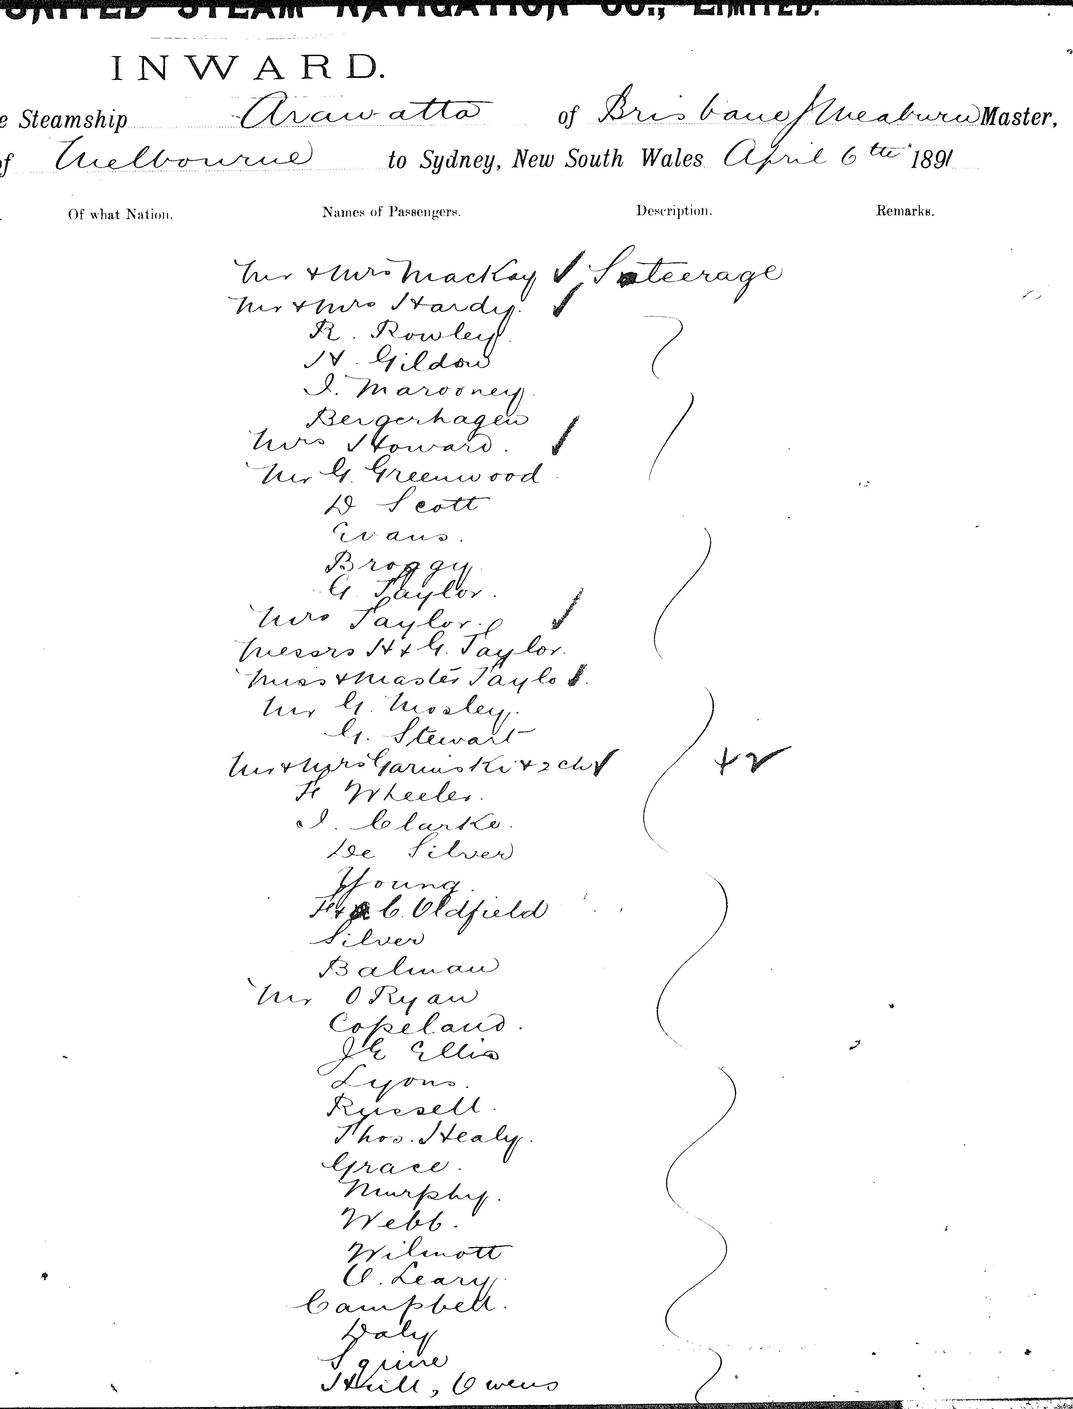 UNITED STEAM NAVIGATION CO., LIMITED.
INWARD.
e Steamship Arawatta of Brisbane J Meaburn Master,
of Melbourne to Sydney, New South Wales April 6th 1891
Of what Nation. Names of Passengers. Description. Remarks.
Mr & Mrs MacKay ✓ Steerage
Mr & Mrs Hardy. ✓
R. Rowley
H. Gildon
I. Marooney.
Bergerhagen
Mrs Howard. ✓
Mr G. Greenwood
D Scott
Evans.
Broggy
G. Taylor.
Mrs Taylor. ✓
Messrs H & G. Taylor.
Miss & Master Taylor.
Mr G. Mosley.
G. Stewart
Mr & Mrs Garinski & 2 ch ✓ +2
F Wheeler.
I. Clarke.
De Silver
Young.
F & C. Oldfield
Silver
Balman
Mr O Ryan
Copeland.
JE Ellis
Lyons.
Russell.
Thos. Healy.
Grace.
Murphy.
Webb.
Wilmott
O. Leary
Campbell.
Daly
Squire
Hull, Owens